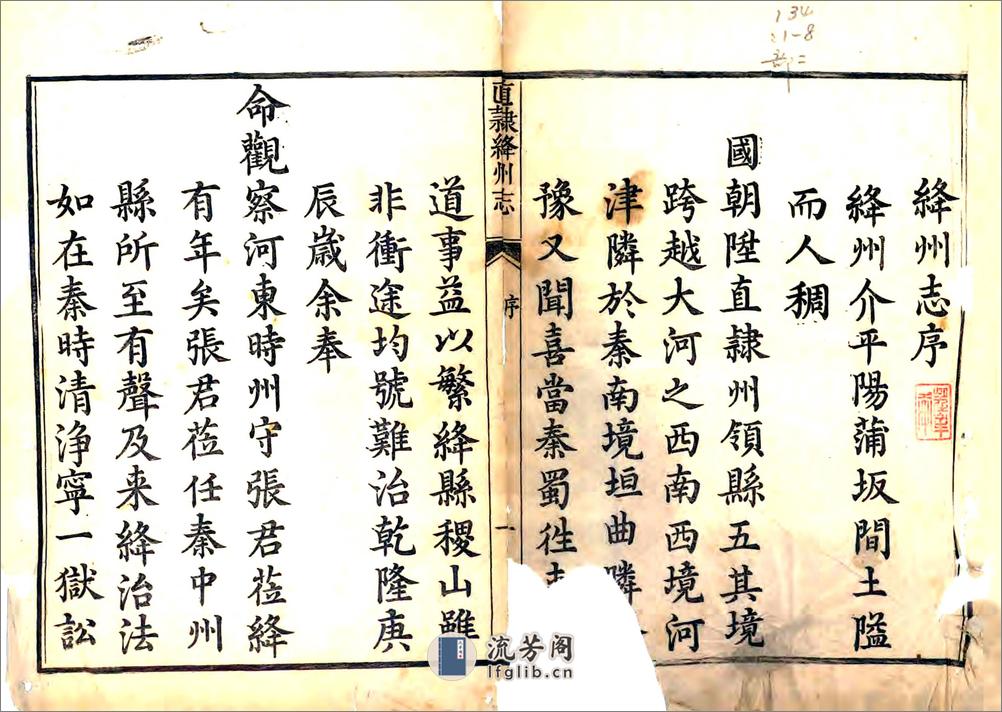 134
21-8
絳州志序
絳州介平陽蒲坂間土隘
而人稠
國朝陞直隸州領縣五其境
跨越大河之西南西境河
津隣於秦南境垣曲隣
豫又聞喜當秦蜀徃
直隸絳州志
序
一
道事益以繁絳縣稷山雖
非衝途均號難治乾隆庚
辰歲余奉
命觀察河東時州守張君莅絳
有年矣張君莅任秦中州
縣所至有聲及来絳治法
如在秦時清浄寧一獄訟
流芳阁
lfglib.cn